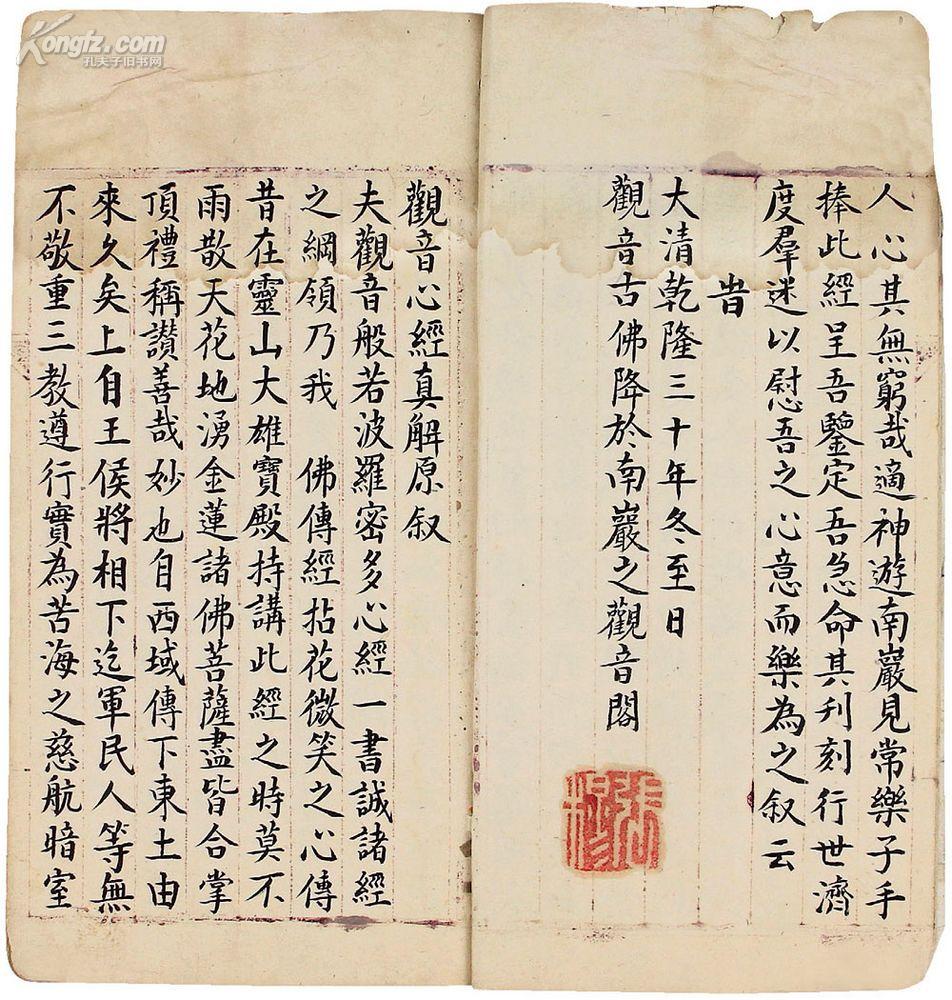 人心其無窮哉適神遊南巖見常樂子手
捧此經呈吾鑒定吾急命其刋刻行世濟
度羣迷以慰吾之心意而樂為之叙云
旹
大清乾隆三十年冬至日
觀音古佛降於南巖之觀音閣
觀音心經真解原叙
夫觀音般若波羅密多心經一書誠諸經
之綱領乃我　佛傳經拈花微笑之心傳
昔在靈山大雄寶殿持講此經之時莫不
雨散天花地湧金蓮諸佛菩薩盡皆合掌
頂禮稱讃善哉妙也自西域傳下東土由
來久矣上自王侯將相下迄軍民人等無
不敬重三教遵行實為苦海之慈航暗室
Kongfz.com
孔夫子旧书网